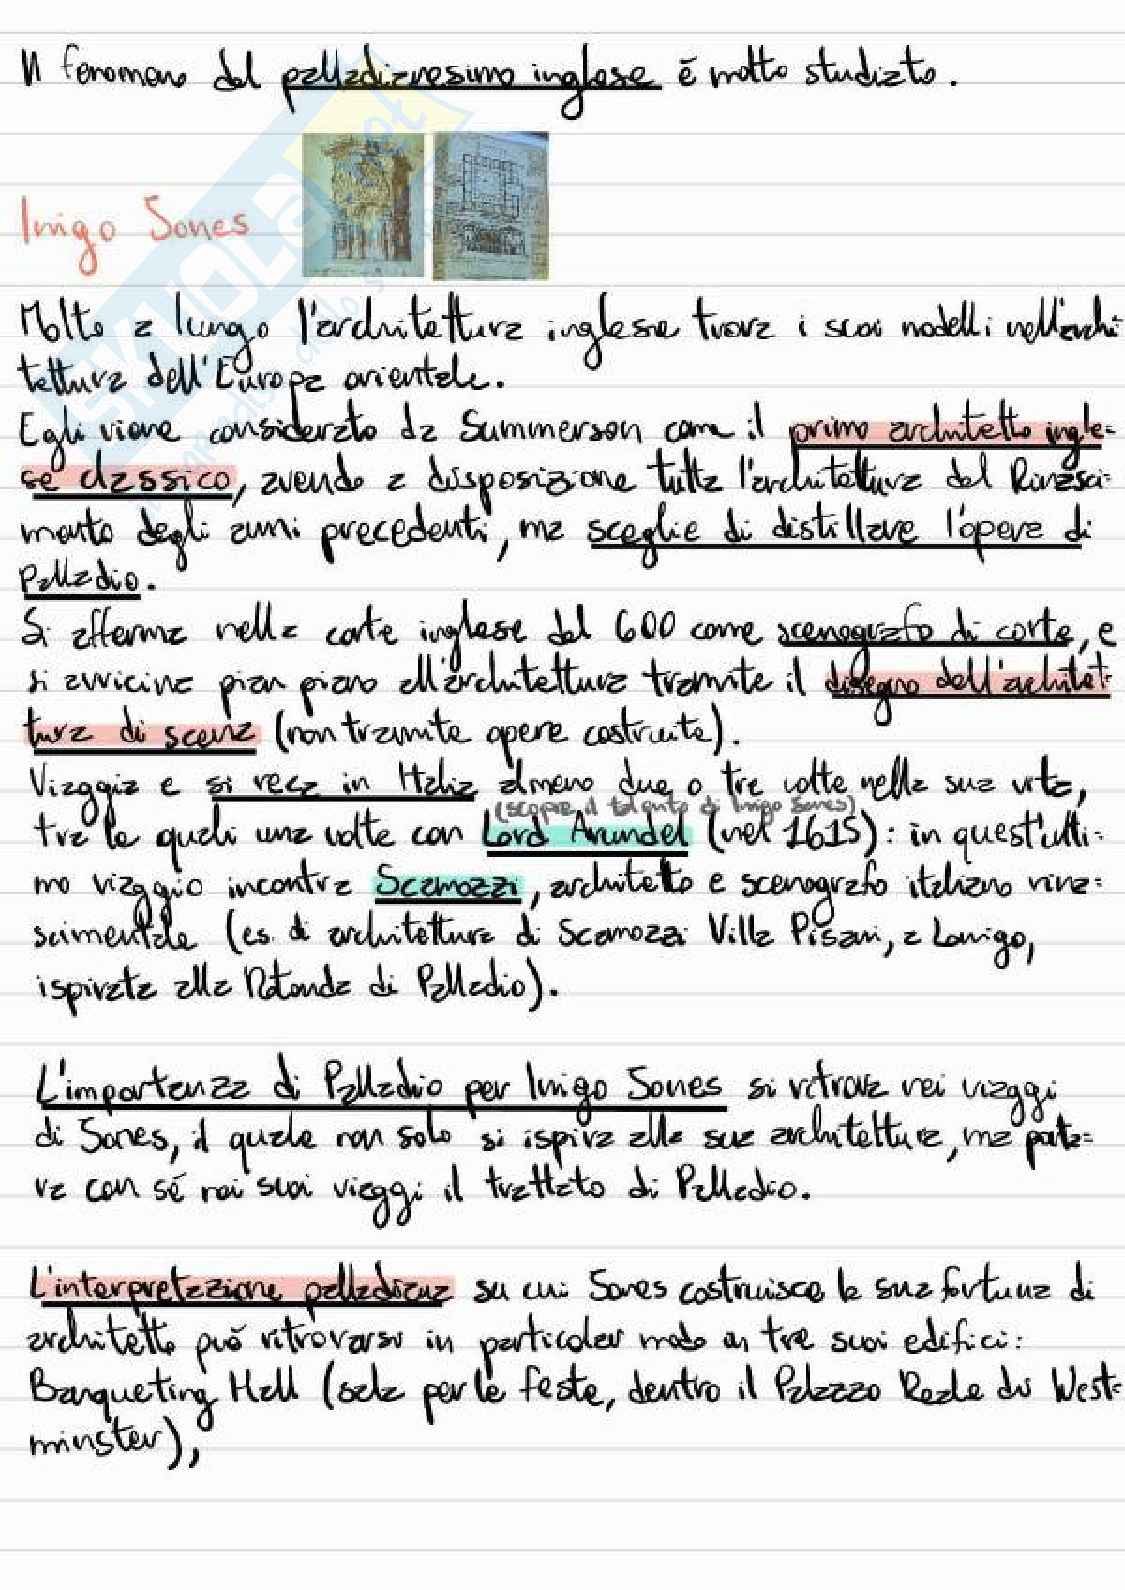 Il fenomeno del palladianesimo inglese è molto studiato.
Inigo Jones
Molto a lungo l'architettura inglese trova i suoi modelli nell'archi
tettura dell'Europa orientale.
Egli viene considerato da Summerson come il primo architetto ingle=
se classico, avendo a disposizione tutta l'architettura del Rinasci=
mento degli anni precedenti, ma sceglie di distillare l'opera di
Palladio.
Si afferma nella corte inglese del 600 come scenografo di corte, e
si avvicina pian piano all'architettura tramite il disegno dell'architet=
tura di scena (non tramite opere costruite).
Viaggia e si reca in Italia almeno due o tre volte nella sua vita,
(scopre il talento di Inigo Jones)
tra le quali una volta con Lord Arundel (nel 1615): in quest'ulti=
mo viaggio incontra Scamozzi, architetto e scenografo italiano rina=
scimentale (es. di architettura di Scamozzi Villa Pisani, a Lonigo,
ispirata alla Rotonda di Palladio).
L'importanza di Palladio per Inigo Jones si ritrova nei viaggi
di Jones, il quale non solo si ispira alla sua architettura, ma porta=
va con sé nei suoi viaggi il trattato di Palladio.
L'interpretazione palladiana su cui Jones costruisce la sua fortuna di
architetto può ritrovarsi in particolar modo in tre suoi edifici:
Banqueting Hall (sala per le feste, dentro il Palazzo Reale di West=
minster),
SKUOLA.net